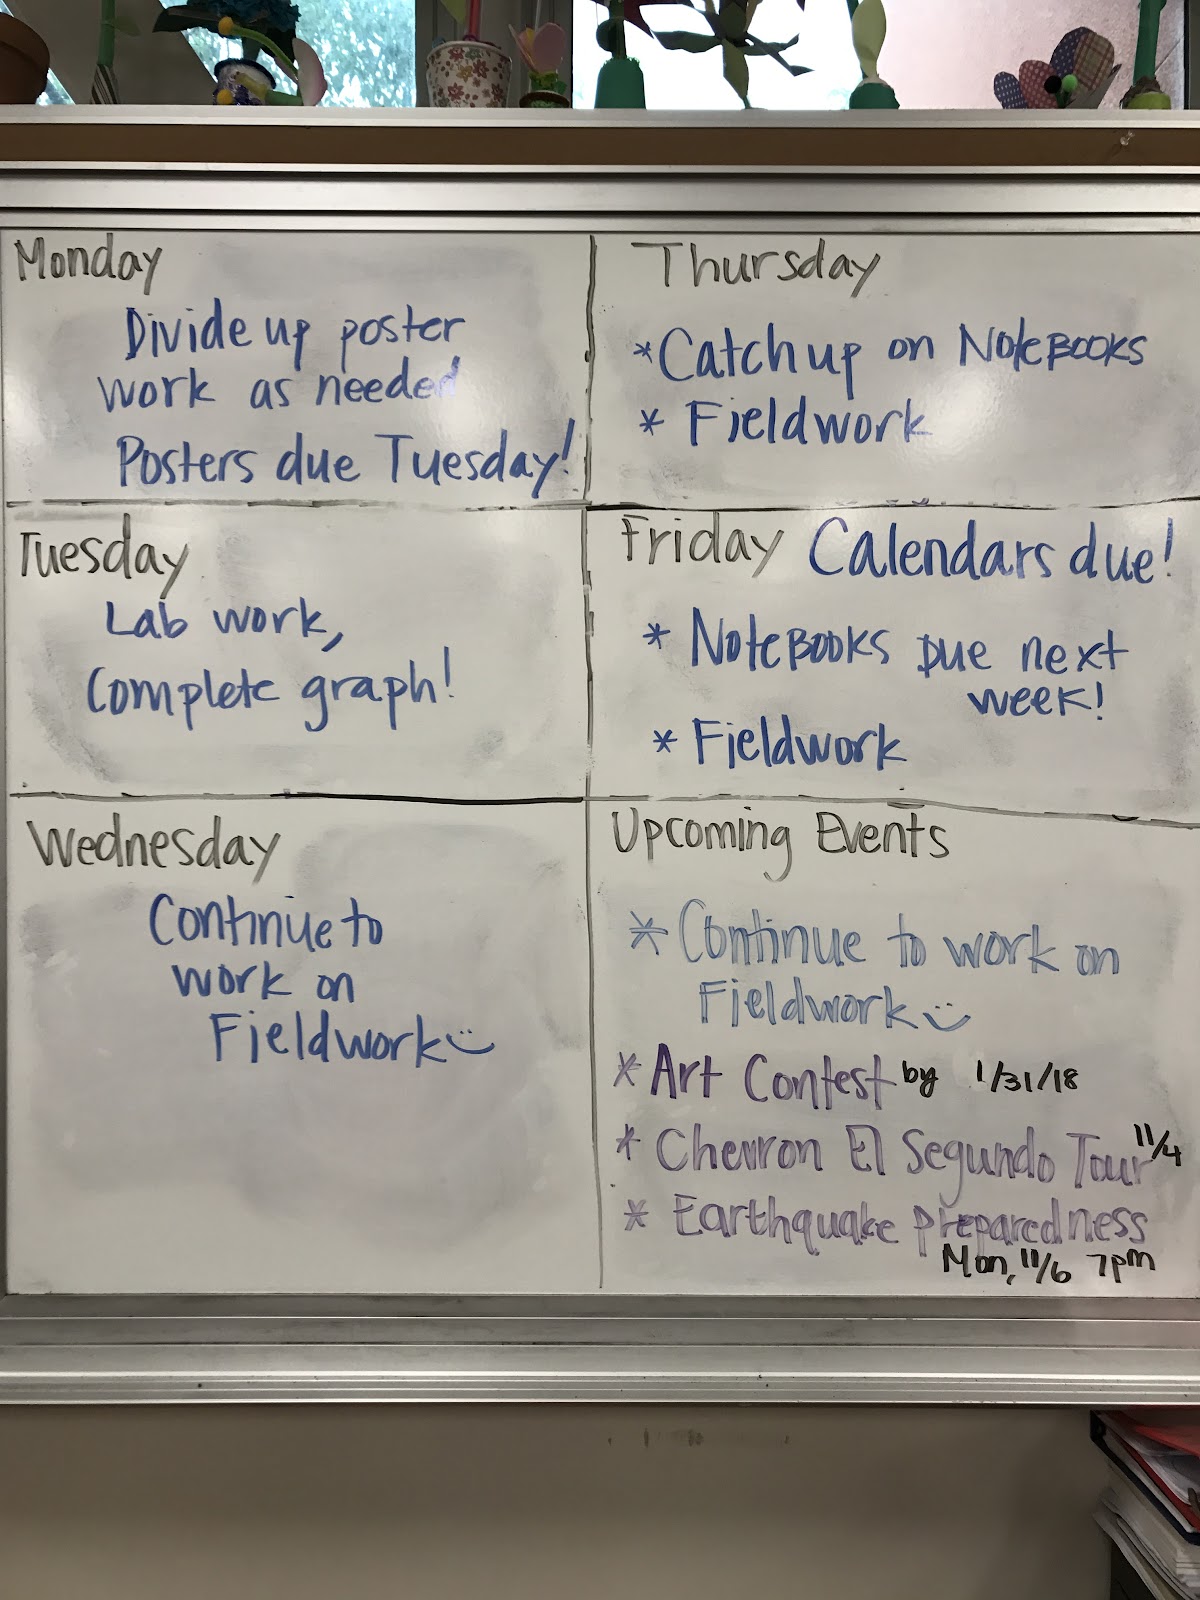 Monday
Divide up poster
work as needed
Posters due Tuesday!
Tuesday
Lab work,
Complete graph!
Wednesday
Continue to
work on
Fieldwork
Thursday
*Catch up on NoteBOOKS
* Fieldwork
Friday Calendars due!
* NoteBOOKS Due next
week!
* Fieldwork
Upcoming Events
* Continue to work on
Fieldwork
* Art Contest by 1/31/18
* Chevron El Segundo Tour 11/4
* Earthquake preparedness
Mon, 11/6 7pm